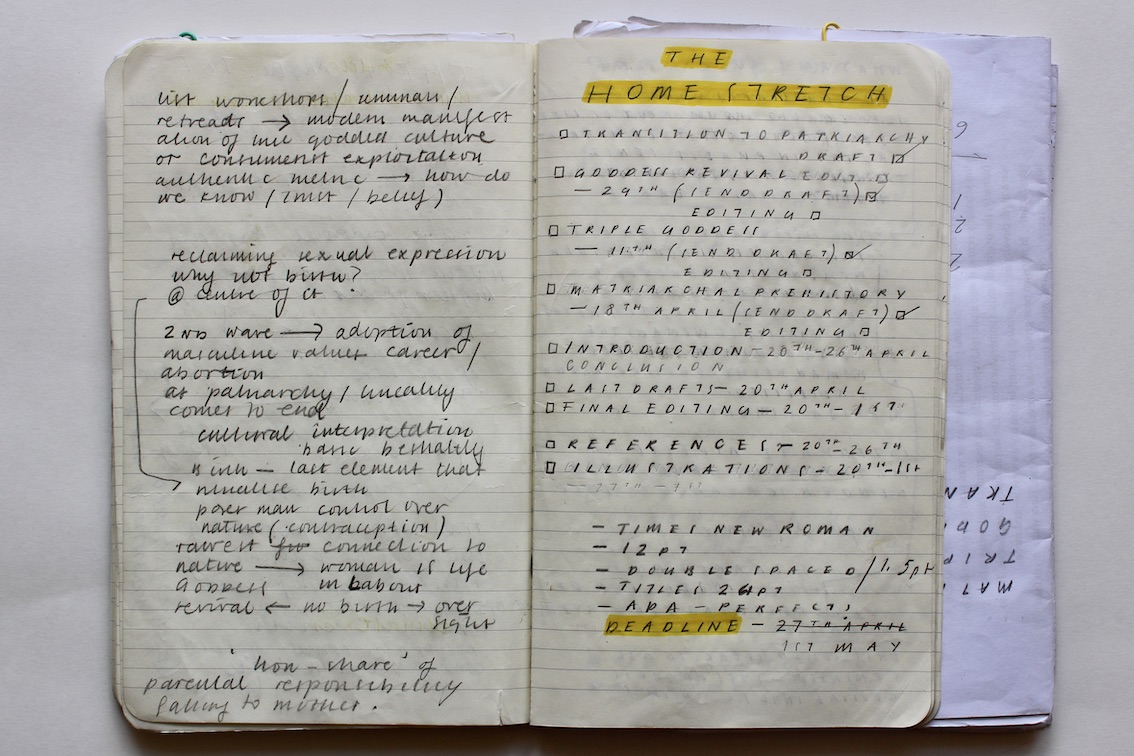 list workshops / /
retreads → modern manifest
ation of goddess culture
or consumerist exploitation
authentic metric → how do
we know / trust / belief )
reclaiming sexual expression
why not birth?
@ centre of ct .
2nd wave → adoption of
masculine values career /
abortion
as patriarchy / lineality
comes to end
cultural interpretation
basic bestiality
birth – last element that
ritualise birth
poser man control over
nature ( contraception )
rawest connection to
nature → woman is life
Goddess in labour
revival ← no birth → over
sight
'non-share' of
parental responsibility
falling to mother .
THE
HOME STRETCH
TRANSITION TO PATRIARCHY
DRAFT
GODDESS REVIVAL EDIT
- 29TH (SEND DRAFT)
EDITING
TRIPLE GODDESS
- 11TH (SEND DRAFT)
EDITING
MATRIARCHAL PREHISTORY
- 18TH APRIL (SEND DRAFT)
EDITING
INTRODUCTION - 20TH-26TH APRIL
CONCLUSION
LAST DRAFTS - 20TH APRIL
FINAL EDITING - 20TH - 1ST
REFERENCES - 20TH - 26TH
ILLUSTRATIONS - 20TH-1ST
- TIMES NEW ROMAN
- 12 PT
- DOUBLE SPACED / 1.5pt
- TITLES 26PT
- APA - PERFECTS
DEADLINE - 27TH APRIL
1ST MAY
TRAN
GOD
TRIP
MAT